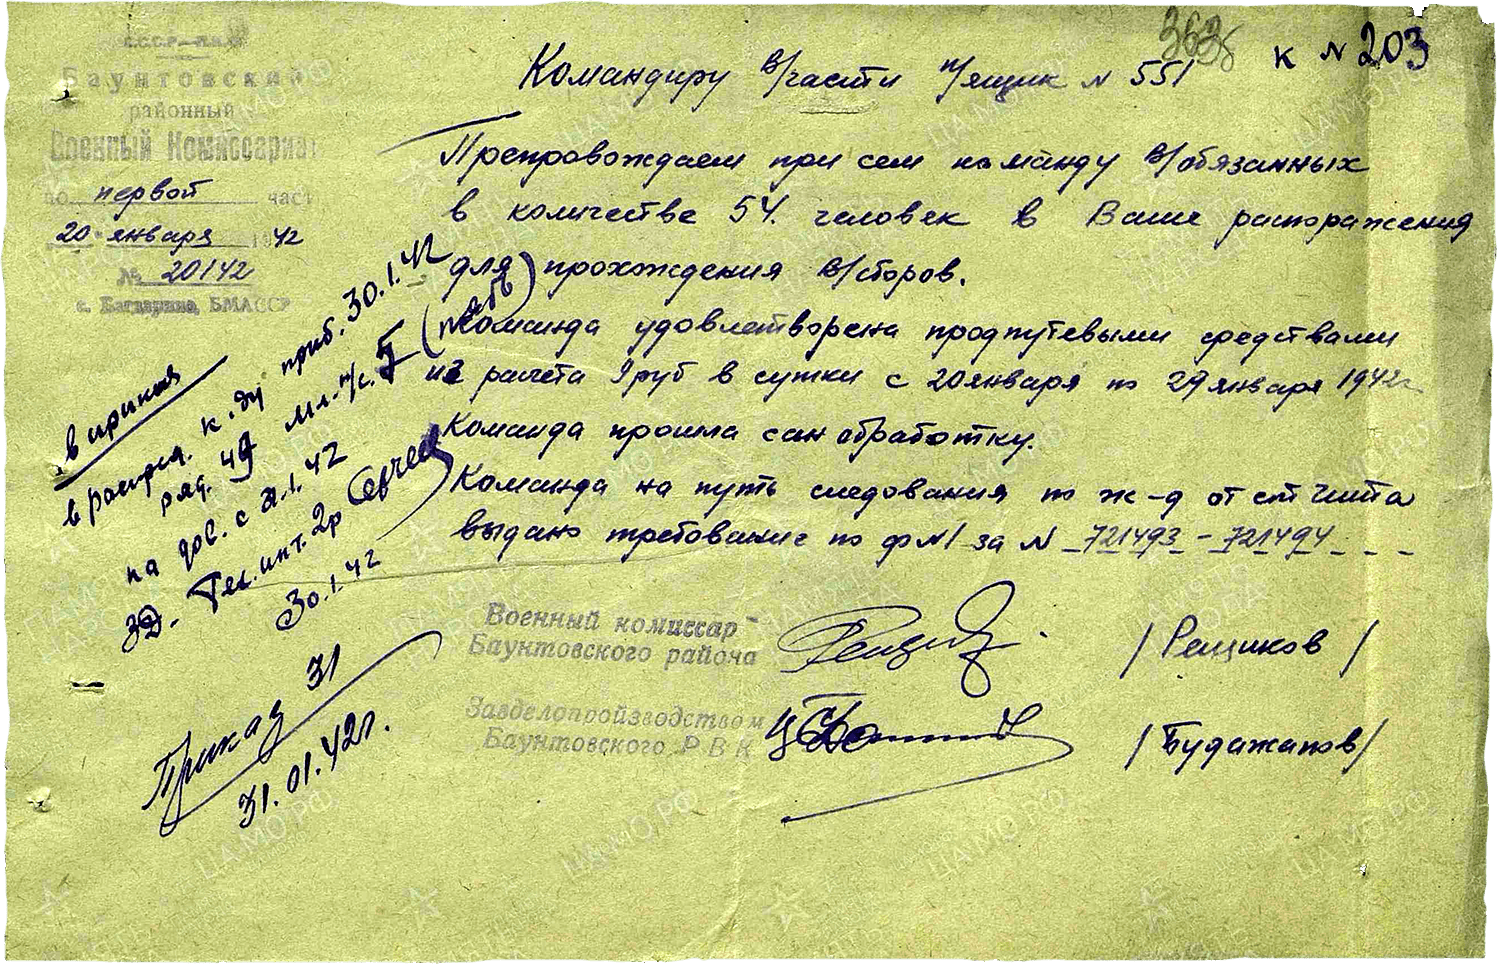 363
к № 203
С.С.С.Р.
Баунтовский
районный
Военный Комиссариат
по первой част
20 января 1942
№ 20142
с. Багдарино, БМАССР
Командиру в/части п/ящик № 551
Препровождаем при сем команду в/обязанных
в количестве 54. человек в Ваше распоражения
для прохождения в/сборов.
Команда удовлетворена продпутевыми средствами
из расчета 9 руб в сутки с 20 января по 29 января 1942г
Команда прошла сан обработку.
Команда на путь следования по ж-д от ст Чита
выдано требование по ф№1 за № 721493 - 721494
в приказ
в распред. к-ду приб. 30.1.42
ряд. 49 мл. н/с. 5 (пять)
на дов. с 31.1.42
30.1.42
Приказ 31
31.01.42г.
Военный комиссар
Баунтовского района
/ Рещиков /
Завделопроизводством
Баунтовского РВК
/ Будажапов /
ЦАМО РФ